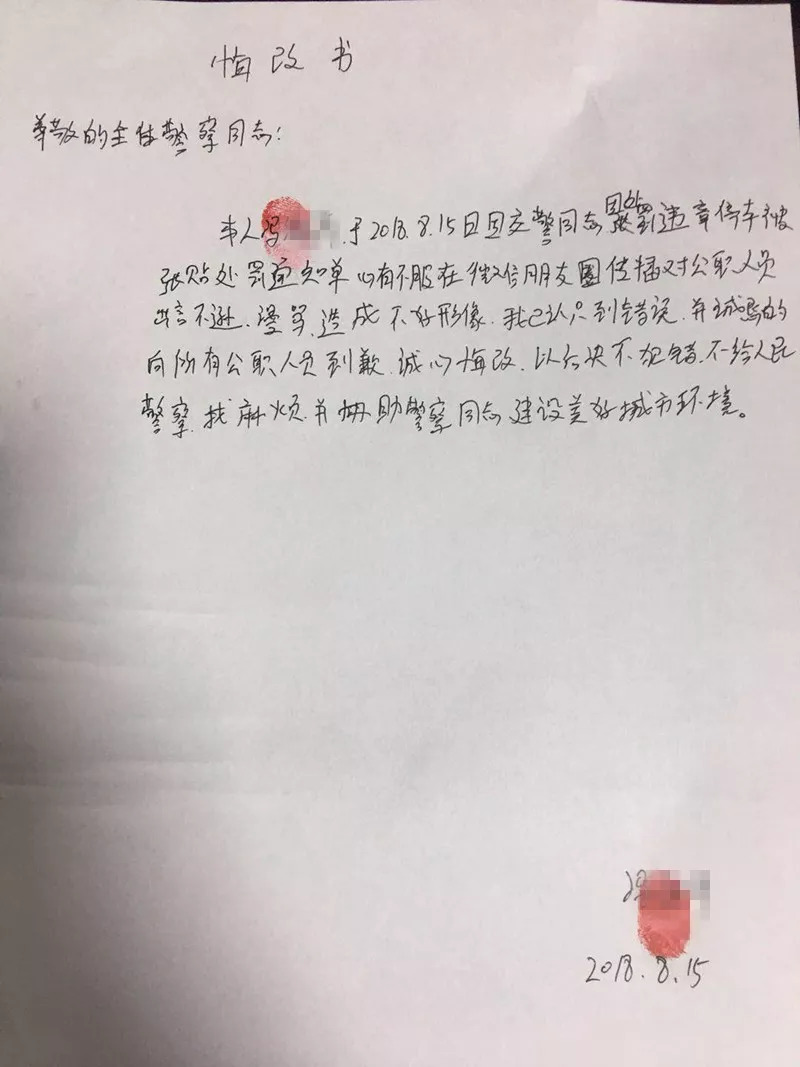 悔改书
尊敬的全体警察同志:
本人冯 于2018.8.15日因交警同志因处罚违章停车被
张贴处罚通知单心有不服在微信朋友圈传播对公职人员
出言不逊.谩骂.造成不好形像.我已认只到错误.并诚恳的
向所有公职人员到歉.诚心悔改.以后决不犯错.不给人民
警察.找麻烦.并帮助警察同志建设美好城市环境。
2018.8.15